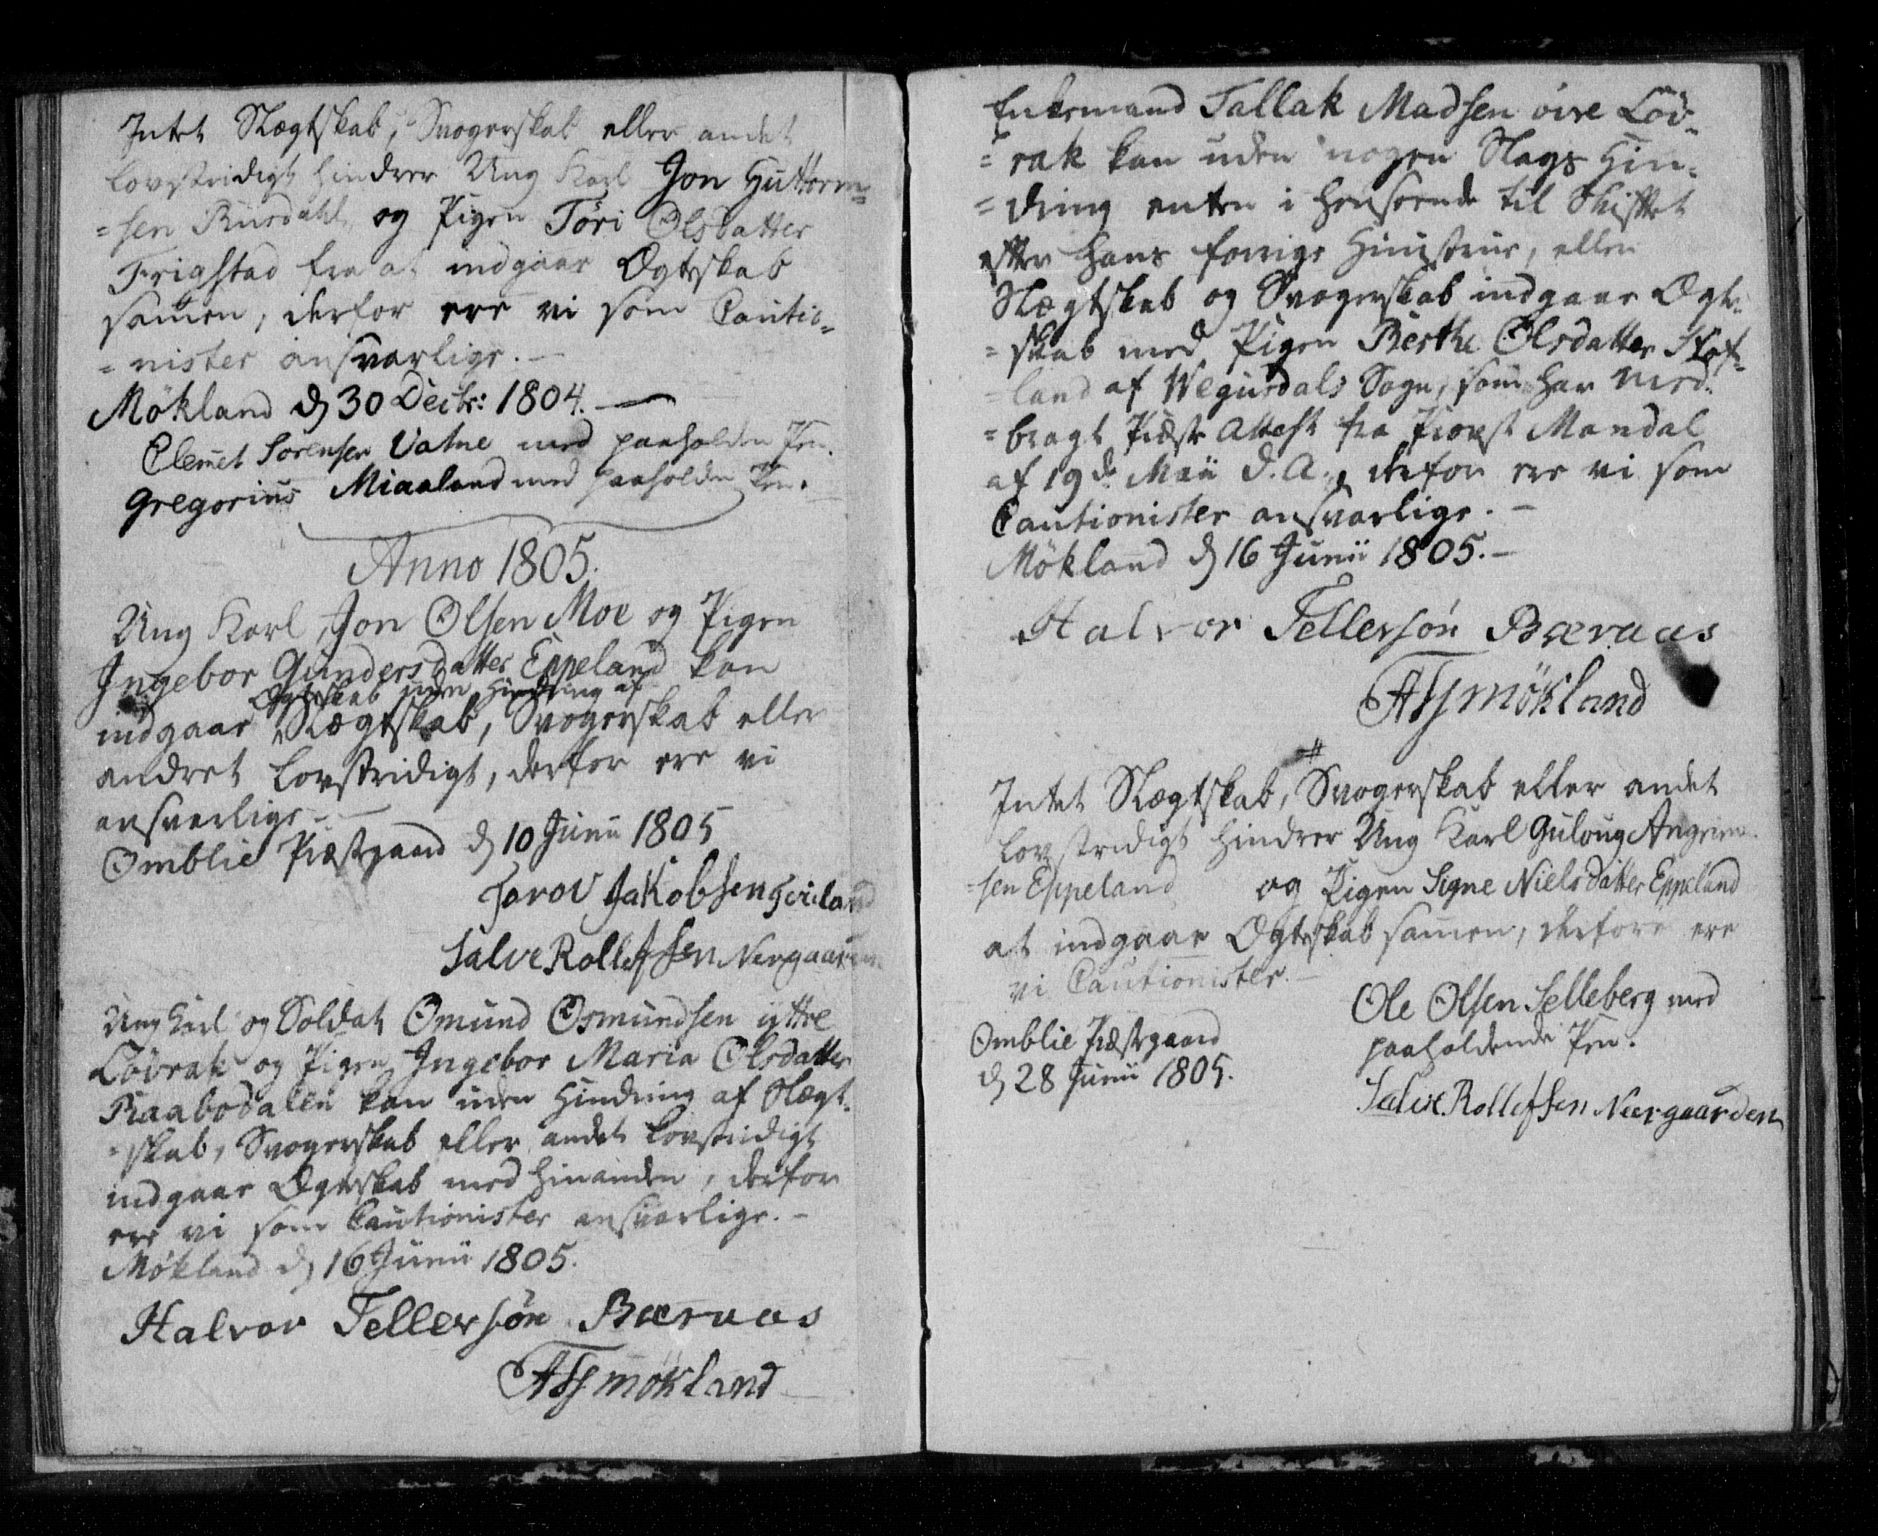 Intet Slægtskab, Svogerskab eller andet
lovstridigt hindrer Ung Karl Jon Guttorm-
=sen Risdahl og Pigen Töri Olsdatter
Frigstad fra at indgaae Ægteskab
samen, derfor ere vi som Cautio-
=nister ansvarlige.—
Mökland d 30 Decbr: 1804.—
Clemet Sorensen Vatne med paaholden Pen.
Gregorius Miaaland med paaholden Pen.
Anno 1805.
Ung Karl Jon Olsen Moe og Pigen
Ingebor Gundersdatter Eppeland kan
Ægteskab uden Hindring af
indgaae Slægtskab, Svogerskab eller
andret lovstridigt, derfor ere vi
ansvarlige.—
Omblie Præstgaard d 10 Junii 1805
Torov Jakobsen
Salve Rollefsen Nergaarden
Ung Karl og Soldat Omund Osmundsen ÿttre
Lövrak og Pigen Ingebor Maria Olsdatter
Raabodalen kan uden Hindring af Slægt-
=skab, Svogerskab eller andet lovstridigt
indgaae Ægteskab med hinanden, derfor
ere vi som Cautionister ansvarlige.—
Mökland d 16 Junii 1805.
Halvor Tellersön Bæraas
Mökland
Enkemand Tallak Madsen öire Löv-
=rak kan uden nogen Slags Hin-
=dring enten i Henseende til Skiftet
efter hans forrige Hüustrue, eller
Slægtskab og Svogerskab indgaae Ægte-
=skab med Pigen Berthe Olsdatter
=land af Wegusdals Sogn, som har med-
=bragt Præste Attest fra Provst Mandal
af 19de Maii d. A., derfor ere vi som
Cautionister ansvarlige.—
Mökland d 16 Junii 1805.—
Halvor Tellersön Bæraas
Mökland
#
Intet Slægtskab, Svogerskab eller andet
lovstridigt hindrer Ung Karl Guloug Angrim-
=sen Eppeland og Pigen Signe Nielsdatter Eppeland
at indgaae Ægteskab samen, derfore ere
vi Cautionister.—
Omblie Præstgaard
d 28 Junii 1805.
Ole Olsen Selleberg med
paaholdende Pen.
Salve Rollefsen Neergaarden